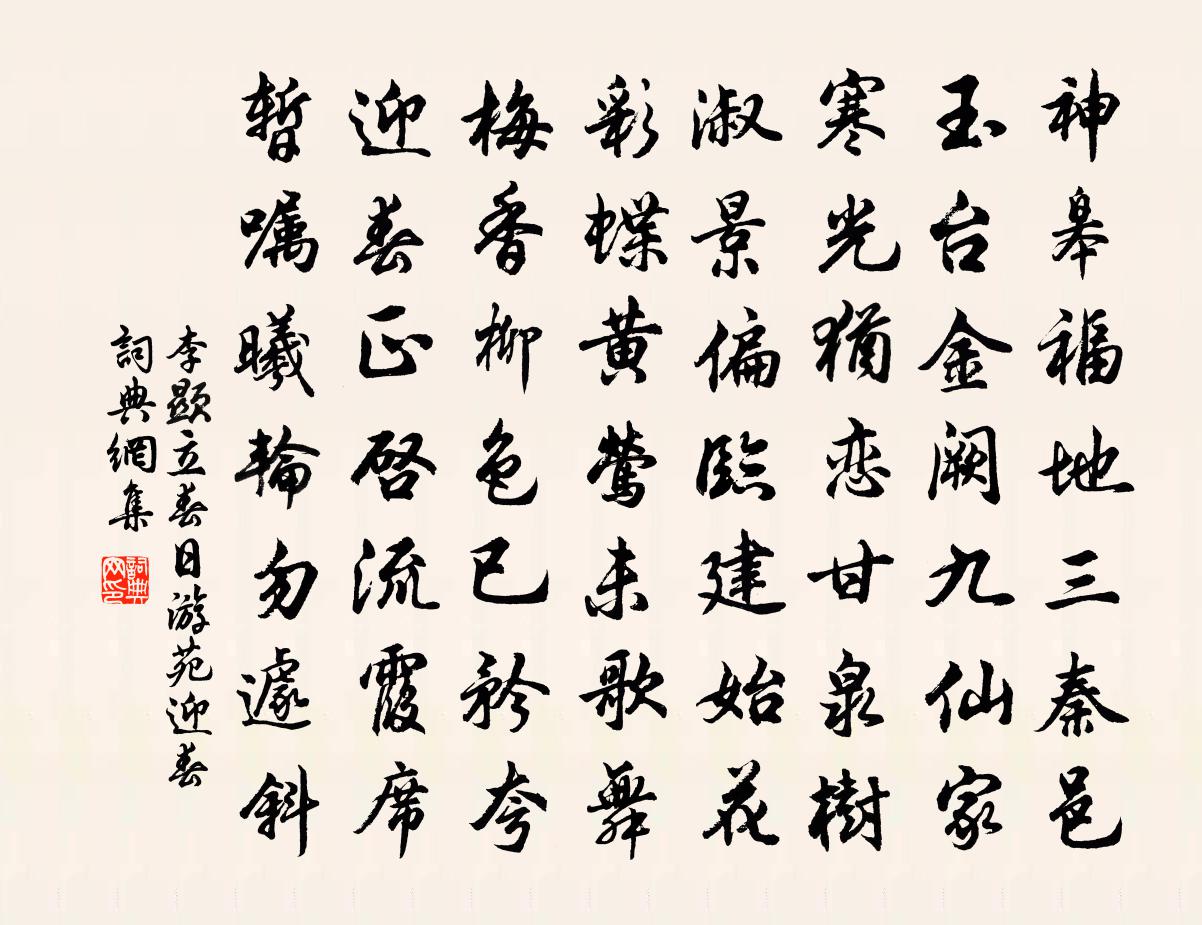 神皋福地三秦邑
玉台金阙九仙家
寒光猶恋甘泉樹
淑景偏臨建始花
彩蝶黄鶯未歌舞
梅香柳色已矜夸
迎春正启流霞席
暫嘱曦輪勿遽斜
李顯立春日游苑迎春
詞典網集
詞典网印